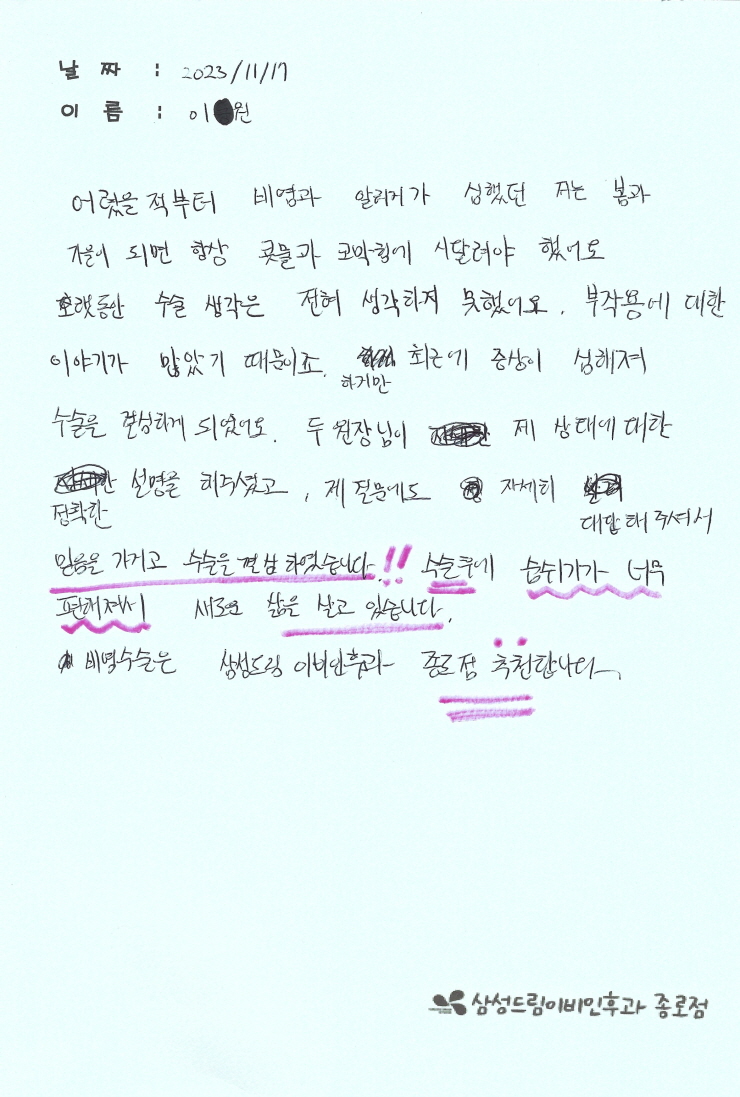 날 짜 : 2023/11/17
이 름 : 이 원
어렸을 적부터 비염과 알러지가 심했던 저는 봄과
가을이 되면 항상 콧물과 코막힘에 시달려야 했어요
오랫동안 수술 생각은 전혀 생각하지 못했어요. 부작용에 대한
이야기가 많았기 때문이죠. 하지만 최근에 증상이 심해져
수술을 결심하게 되었어요. 두 원장님이 제 상태에 대한
정확한 설명을 해주셨고, 제 질문에도 자세히 대답해 주셔서
믿음을 가지고 수술을 결심 하였습니다.!! 수술후에 숨쉬기가 너무
편해져서 새로운 삶을 살고 있습니다.
비염수술은 삼성드림 이비인후과 종로점 추천합니다~
삼성드림이비인후과 종로점